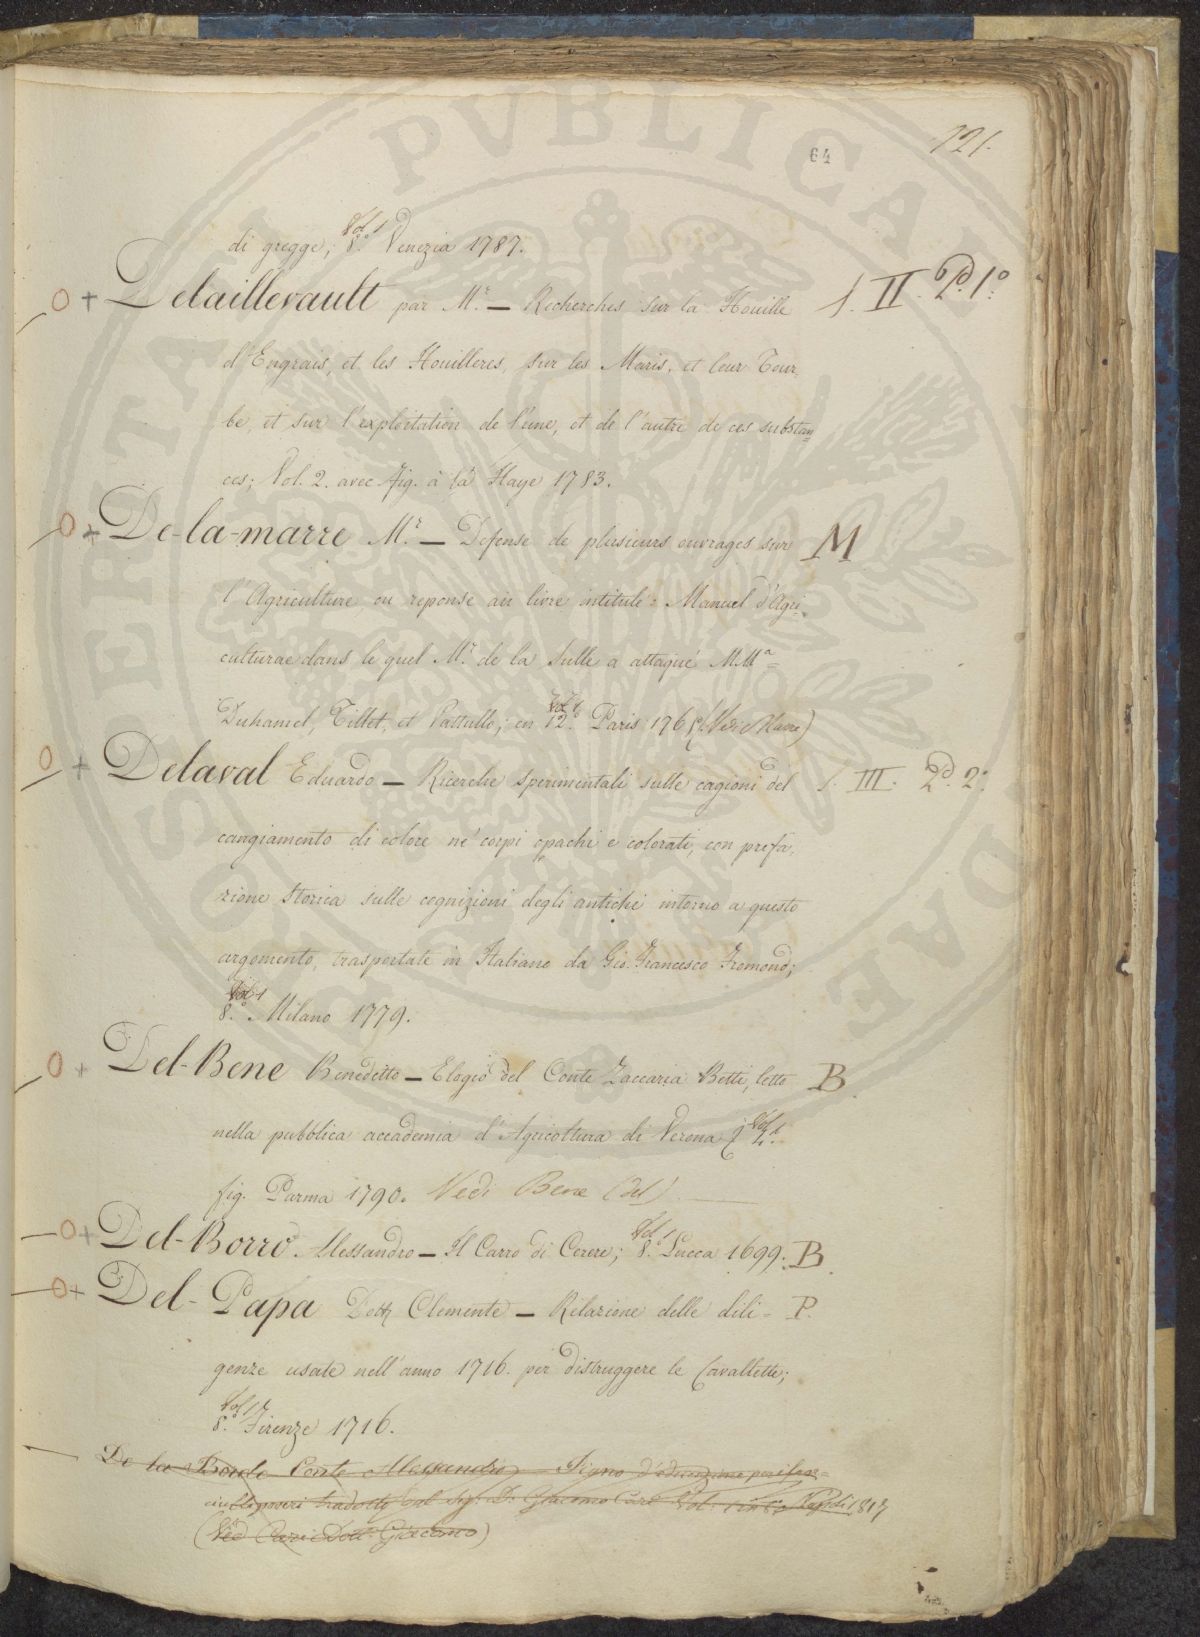 64
121.
di gregge; Vol 1 8.° Venezia 1787.
O + Delaillevault par M.r — Recherches sur la Houille S. II. P.d 1.°
d'Engrais, et les Houilleres, sur les Maris, et leur Tour
be, et sur l'exploitation de l'une, et de l'autre de ces substan=
ces; Vol. 2. avec Fig. à la Haye 1783.
O + De-la-marre M.r — Defense de plusieurs ouvrages sur M
l'Agriculture ou reponse au livre intitulé: Manuel d'Agri
culturae dans le quel M.r de la Salle a attaqué M.M.
Duhamel, Tillet, et Pattullo; en Vol 1 12.° Paris 1765 (Vedi Marre)
O + Delaval Eduardo — Ricerche sperimentali sulle cagioni del S. III. P.d 2.°
cangiamento di colore ne' corpi opachi e colorati, con prefa,
zione storica sulle cognizioni degli antichi intorno a questo
argomento, trasportate in Italiano da Gio. Francesco Fromond;
Vol 1 8.° Milano 1779.
O + Del-Bene Benedetto — Elogio del Conte Zaccaria Betti, letto B
nella pubblica accademia d'Agricoltura di Verona; Vol 1 4.°
fig. Parma 1790. Vedi Bene (del)
O + Del-Borro Alessandro — Il Carro di Cerere; Vol 1 8.° Lucca 1699. B
O + Del-Papa Dott. Clemente — Relazione delle dili= P.
genze usate nell'anno 1716. per distruggere le Cavallette;
Vol 1 8.° Firenze 1716.
De la Borde Conte Alessandro — Piano d'educazione per i fan=
ciulli poveri tradotto dal Sig. D. Giacomo Vol. 1 in 8.° 1817
(Ved Dott. Giacomo)